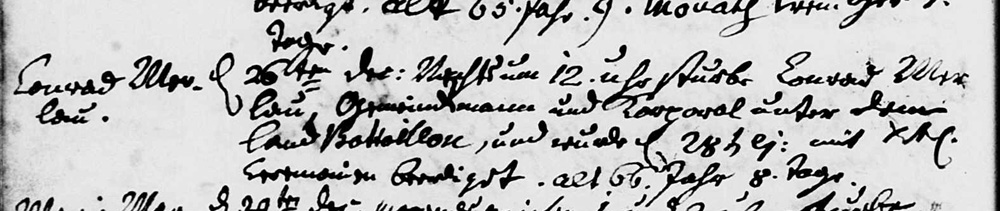 beerdigt. alt 65. Jahr. 9. Monath
Tage.
Conrad Mer- d 26ten dec: Nachts um 12. uhr sturbe Conrad Mer
lau. lau, Gemeindsmann und Korporal unter dem
Land Battaillon, und wurde d 28t ej: mit
Ceremonien beerdigt. alt 66. Jahr 8. Tage.